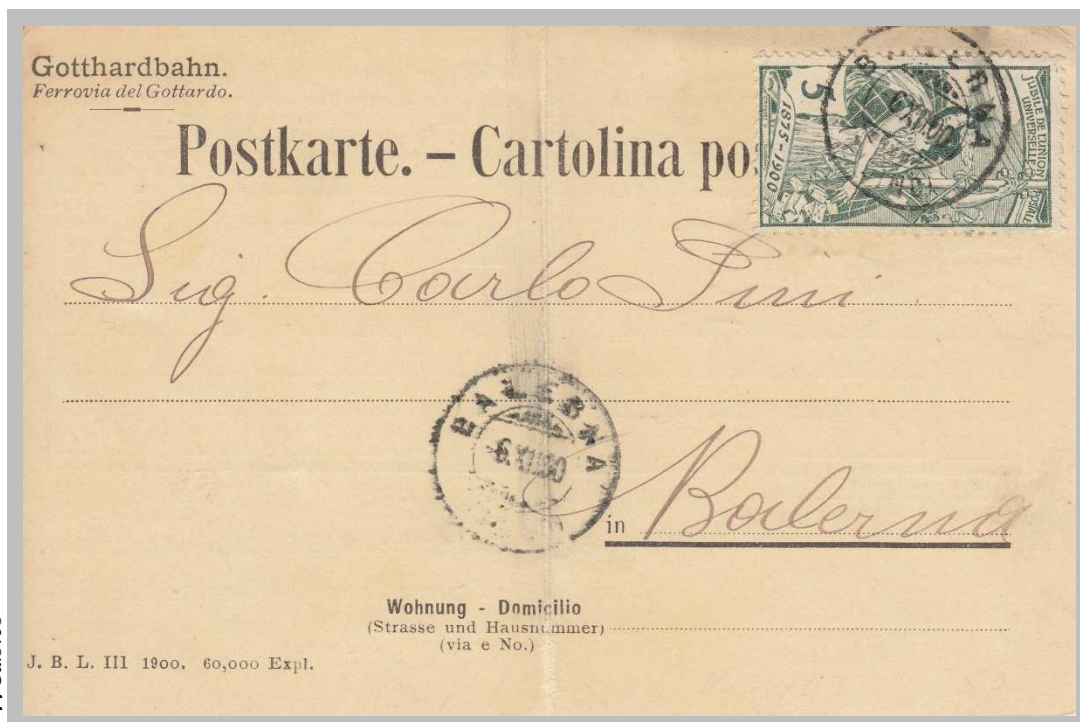 Gotthardbahn.
Ferrovia del Gottardo.
Postkarte. – Cartolina pos
JUBILÉ DE L'UNION
POSTALE
UNIVERSELLE
5
1875-1900
BALERNA
6.XII.00
Sig. Carlo Pini
BALERNA
6.XII.00
in Balerna
Wohnung - Domicilio
(Strasse und Hausnummer)
(via e No.)
J. B. L. III 1900. 60,000 Expl.